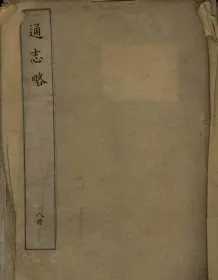 通志略
八冊